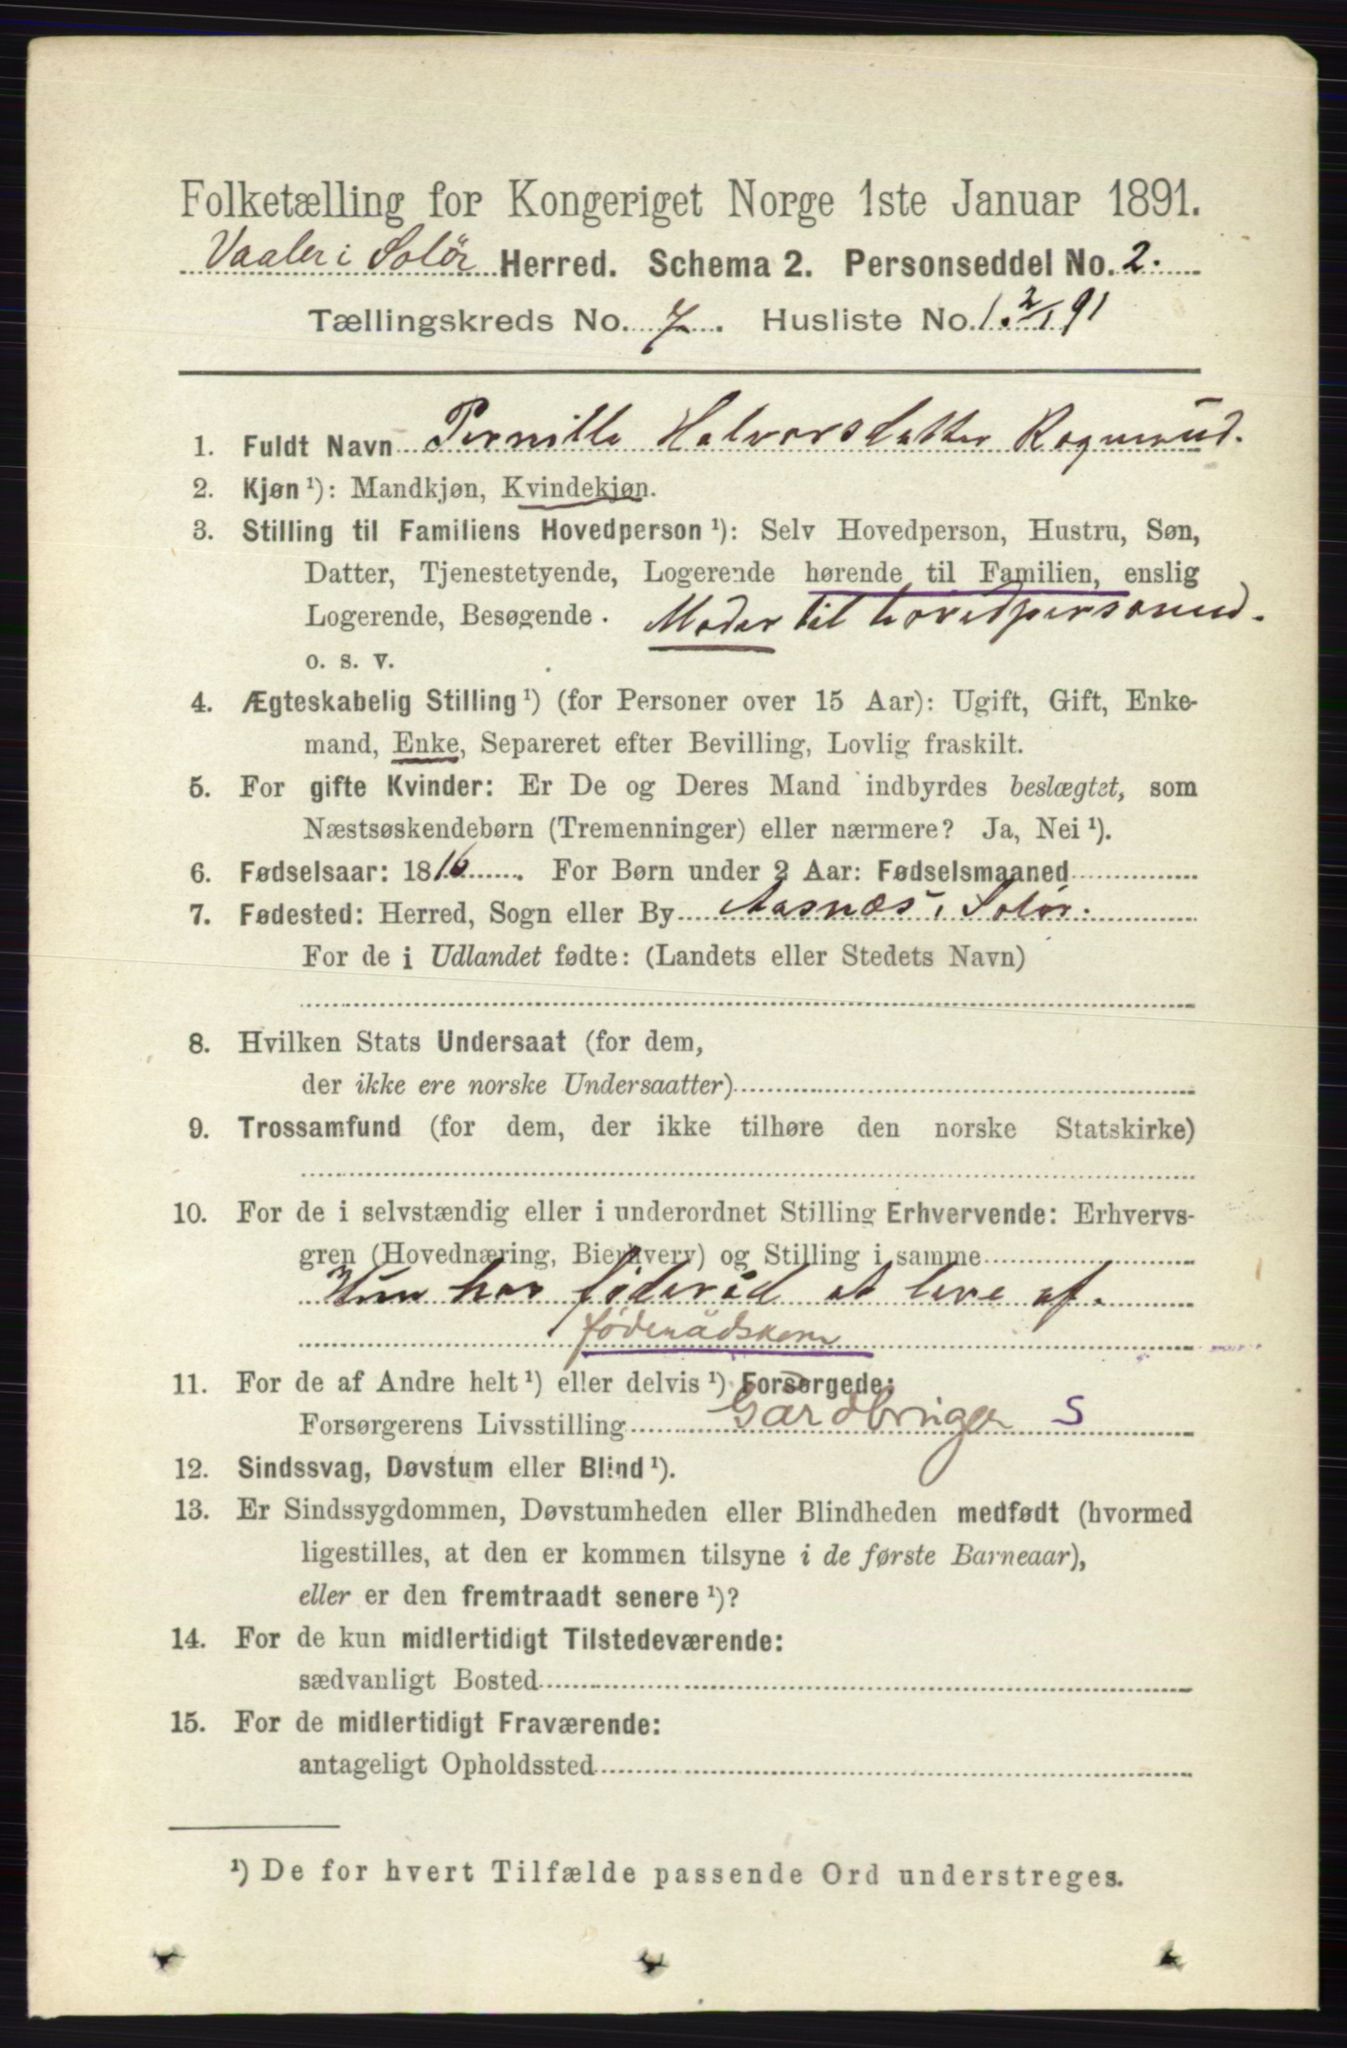 Folketælling for Kongeriget Norge 1ste Januar 1891.
Vaaler i Solør Herred. Schema 2. Personseddel No. 2.
Tællingskreds No. 7. Husliste No. 1. 2/1 91
1. Fuldt Navn Pernille Halvorsdatter Rognerud.
2. Kjøn ¹): Mandkjøn, Kvindekjøn.
3. Stilling til Familiens Hovedperson ¹): Selv Hovedperson, Hustru, Søn,
Datter, Tjenestetyende, Logerende hørende til Familien, enslig
Logerende, Besøgende. Moder til hovedpersonen.
o. s. v.
4. Ægteskabelig Stilling ¹) (for Personer over 15 Aar): Ugift, Gift, Enke-
mand, Enke, Separeret efter Bevilling, Lovlig fraskilt.
5. For gifte Kvinder: Er De og Deres Mand indbyrdes beslægtet, som
Næstsøskendebørn (Tremenninger) eller nærmere? Ja, Nei ¹).
6. Fødselsaar: 1816. For Børn under 2 Aar: Fødselsmaaned
7. Fødested: Herred, Sogn eller By Aasnæs i Solør.
For de i Udlandet fødte: (Landets eller Stedets Navn)
8. Hvilken Stats Undersaat (for dem,
der ikke ere norske Undersaatter)
9. Trossamfund (for dem, der ikke tilhøre den norske Statskirke)
10. For de i selvstændig eller i underordnet Stilling Erhvervende: Erhvervs-
gren (Hovednæring, Bierhverv) og Stilling i samme
Hun har føderåd at leve af.
føderådskone
11. For de af Andre helt ¹) eller delvis ¹) Forsørgede:
Forsørgerens Livsstilling Gardbruger S
12. Sindssvag, Døvstum eller Blind ¹).
13. Er Sindssygdommen, Døvstumheden eller Blindheden medfødt (hvormed
ligestilles, at den er kommen tilsyne i de første Barneaar),
eller er den fremtraadt senere ¹)?
14. For de kun midlertidigt Tilstedeværende:
sædvanligt Bosted
15. For de midlertidigt Fraværende:
antageligt Opholdssted
¹) De for hvert Tilfælde passende Ord understreges.